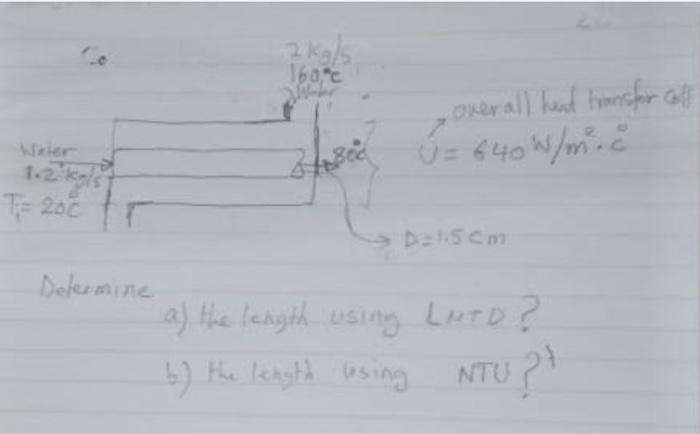 2 kg/s
160°C
Water
overall heat transfer coff
Water
1.2 kg/s
80°C
U = 640 W/m².°C
Ti = 20°C
D = 1.5 cm
Determine
a) the length using LMTD?
b) the length using NTU?